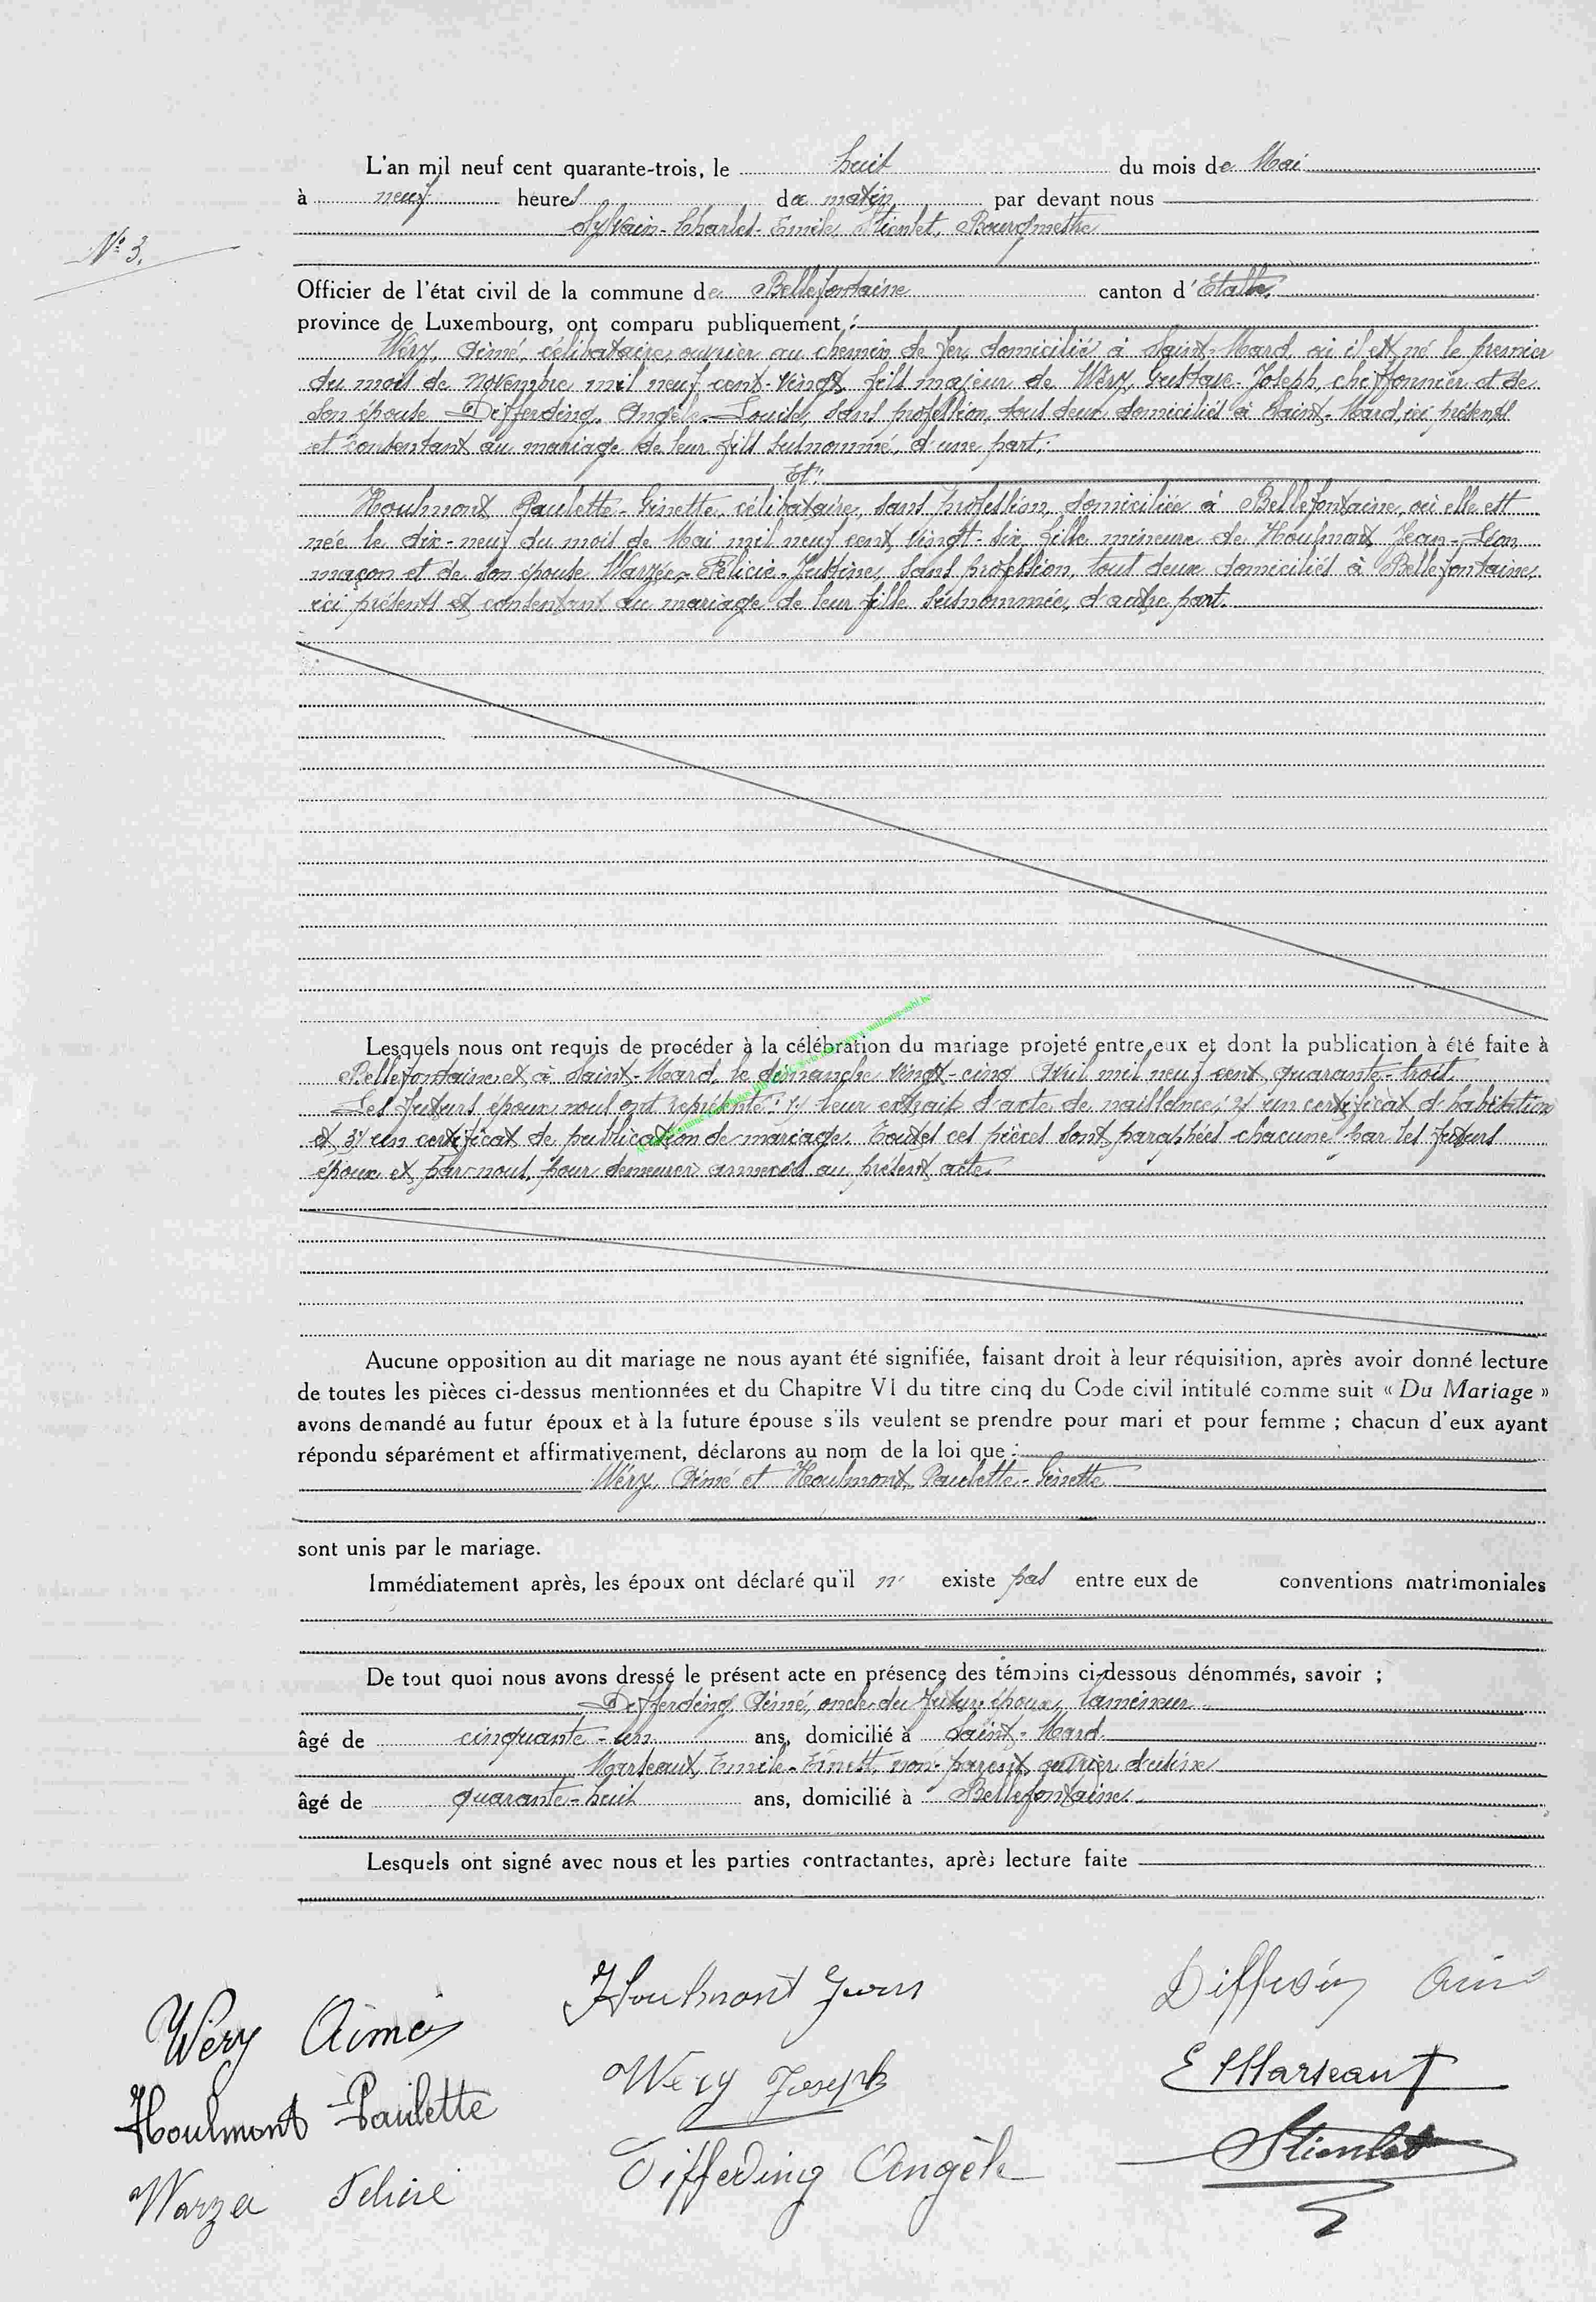 L'an mil neuf cent quarante-trois, le huit du mois de Mai
à neuf heures du matin par devant nous
Sylvain-Charles-Emile Stienlet, Bourgmestre
N° 3.
Officier de l'état civil de la commune de Bellefontaine canton d'Etalle,
province de Luxembourg, ont comparu publiquement :
Wéry, Aimé, célibataire, ouvrier au chemin de fer, domicilié à Saint-Mard, où il est né le premier
du mois de novembre mil neuf cent-vingt, fils majeur de Wéry, Gustave-Joseph, chiffonnier et de
son épouse Differding, Angèle-Louise, sans profession, tous deux domiciliés à Saint-Mard, ici présents
et consentant au mariage de leur fils susnommé, d'une part;
Et:
Houlmont, Paulette-Ginette, célibataire, sans profession, domiciliée à Bellefontaine, où elle est
née le dix-neuf du mois de Mai mil neuf cent vingt-six, fille mineure de Houlmont, Jean-Léon,
maçon et de son épouse Warzée, Félicie-Justine, sans profession, tous deux domiciliés à Bellefontaine,
ici présents et consentant au mariage de leur fille susnommée, d'autre part.
Lesquels nous ont requis de procéder à la célébration du mariage projeté entre eux et dont la publication à été faite à
Bellefontaine et à Saint-Mard, le dimanche vingt-cinq Avril mil neuf cent quarante-trois.
Les futurs époux nous ont représenté: 1°/ leur extrait d'acte de naissance; 2°/ un certificat d'habitation
et 3°/ un certificat de publication de mariage. Toutes ces pièces sont paraphées chacune par les futurs
époux et par nous, pour demeurer annexées au présent acte.
Aucune opposition au dit mariage ne nous ayant été signifiée, faisant droit à leur réquisition, après avoir donné lecture
de toutes les pièces ci-dessus mentionnées et du Chapitre VI du titre cinq du Code civil intitulé comme suit « Du Mariage »
avons demandé au futur époux et à la future épouse s'ils veulent se prendre pour mari et pour femme ; chacun d'eux ayant
répondu séparément et affirmativement, déclarons au nom de la loi que :
Wéry, Aimé et Houlmont, Paulette-Ginette
sont unis par le mariage.
Immédiatement après, les époux ont déclaré qu'il n' existe pas entre eux de conventions matrimoniales
De tout quoi nous avons dressé le présent acte en présence des témoins ci-dessous dénommés, savoir ;
Differding, Aimé, oncle du futur époux, lamineur
âgé de cinquante-un ans, domicilié à Saint-Mard
Marseaut, Emile-Ernest, non-parent, ouvrier d'usine
âgé de quarante-huit ans, domicilié à Bellefontaine.
Lesquels ont signé avec nous et les parties contractantes, après lecture faite
Wéry Aimé
Houlmont Paulette
Warzée Félicie
Houlmont Jean
Wéry Joseph
Differding Angèle
E Marseaut
Stienlet